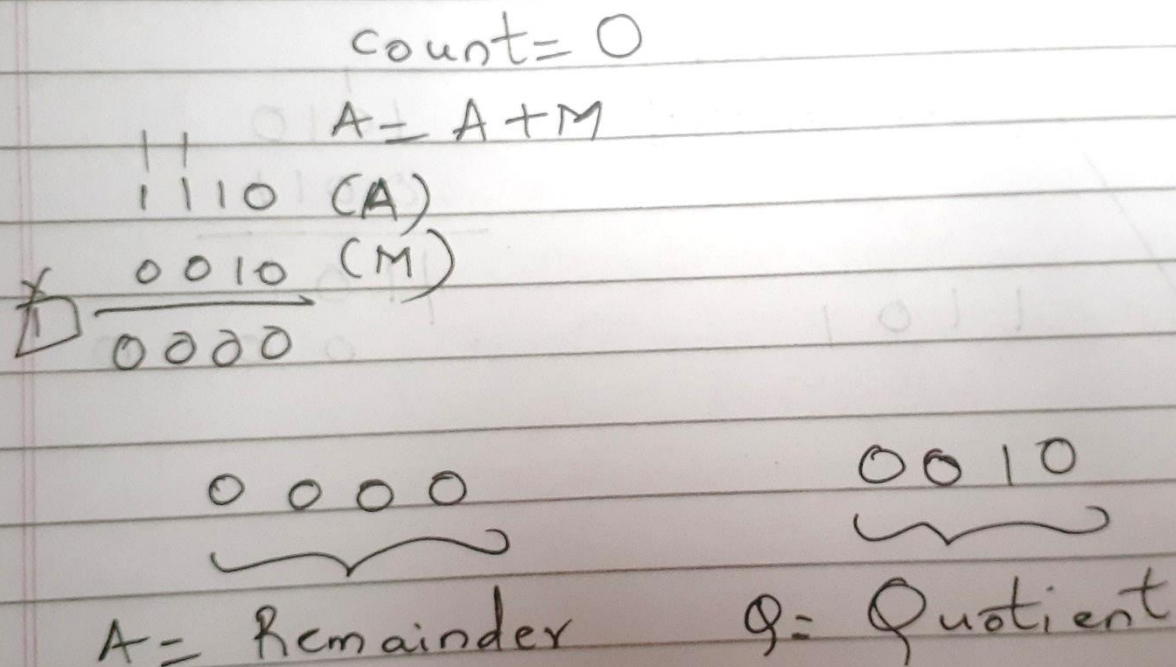 count= 0
A = A + M
1 1
1 1 1 0 (A)
0 0 1 0 (M)
0 0 0 0
0 0 0 0 0 0 1 0
A = Remainder Q = Quotient